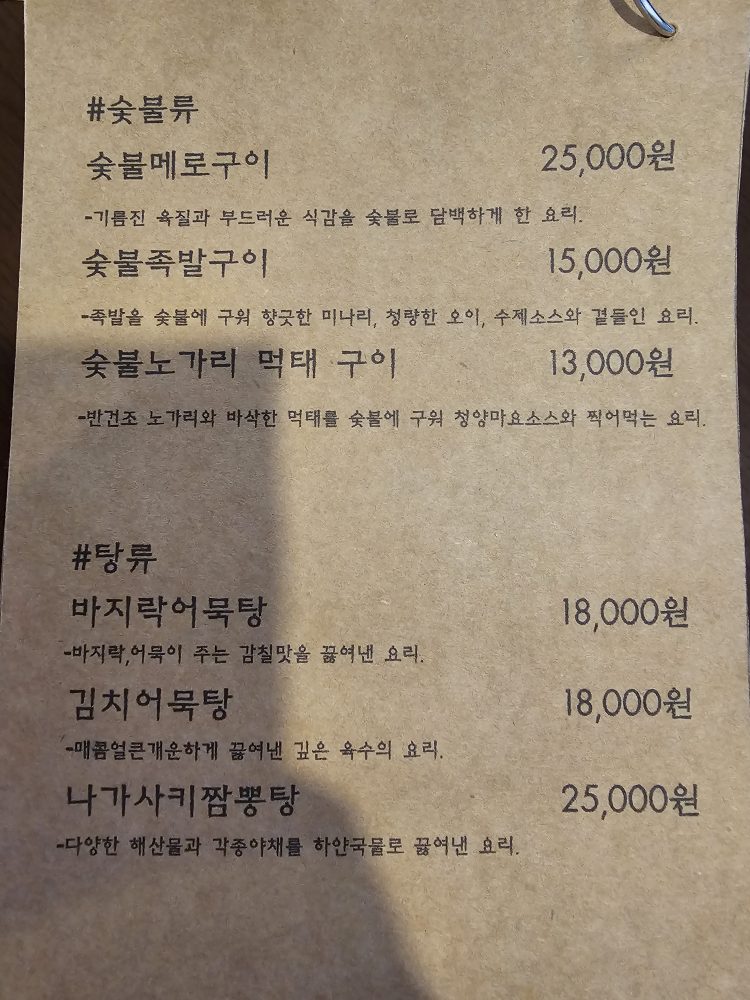 #숯불류
숯불메로구이 25,000원
-기름진 육질과 부드러운 식감을 숯불로 담백하게 한 요리.
숯불족발구이 15,000원
-족발을 숯불에 구워 향긋한 미나리, 청량한 오이, 수제소스와 곁들인 요리.
숯불노가리 먹태 구이 13,000원
-반건조 노가리와 바삭한 먹태를 숯불에 구워 청양마요소스와 찍어먹는 요리.
#탕류
바지락어묵탕 18,000원
-바지락,어묵이 주는 감칠맛을 끓여낸 요리.
김치어묵탕 18,000원
-매콤얼큰개운하게 끓여낸 깊은 육수의 요리.
나가사키짬뽕탕 25,000원
-다양한 해산물과 각종야채를 하얀국물로 끓여낸 요리.